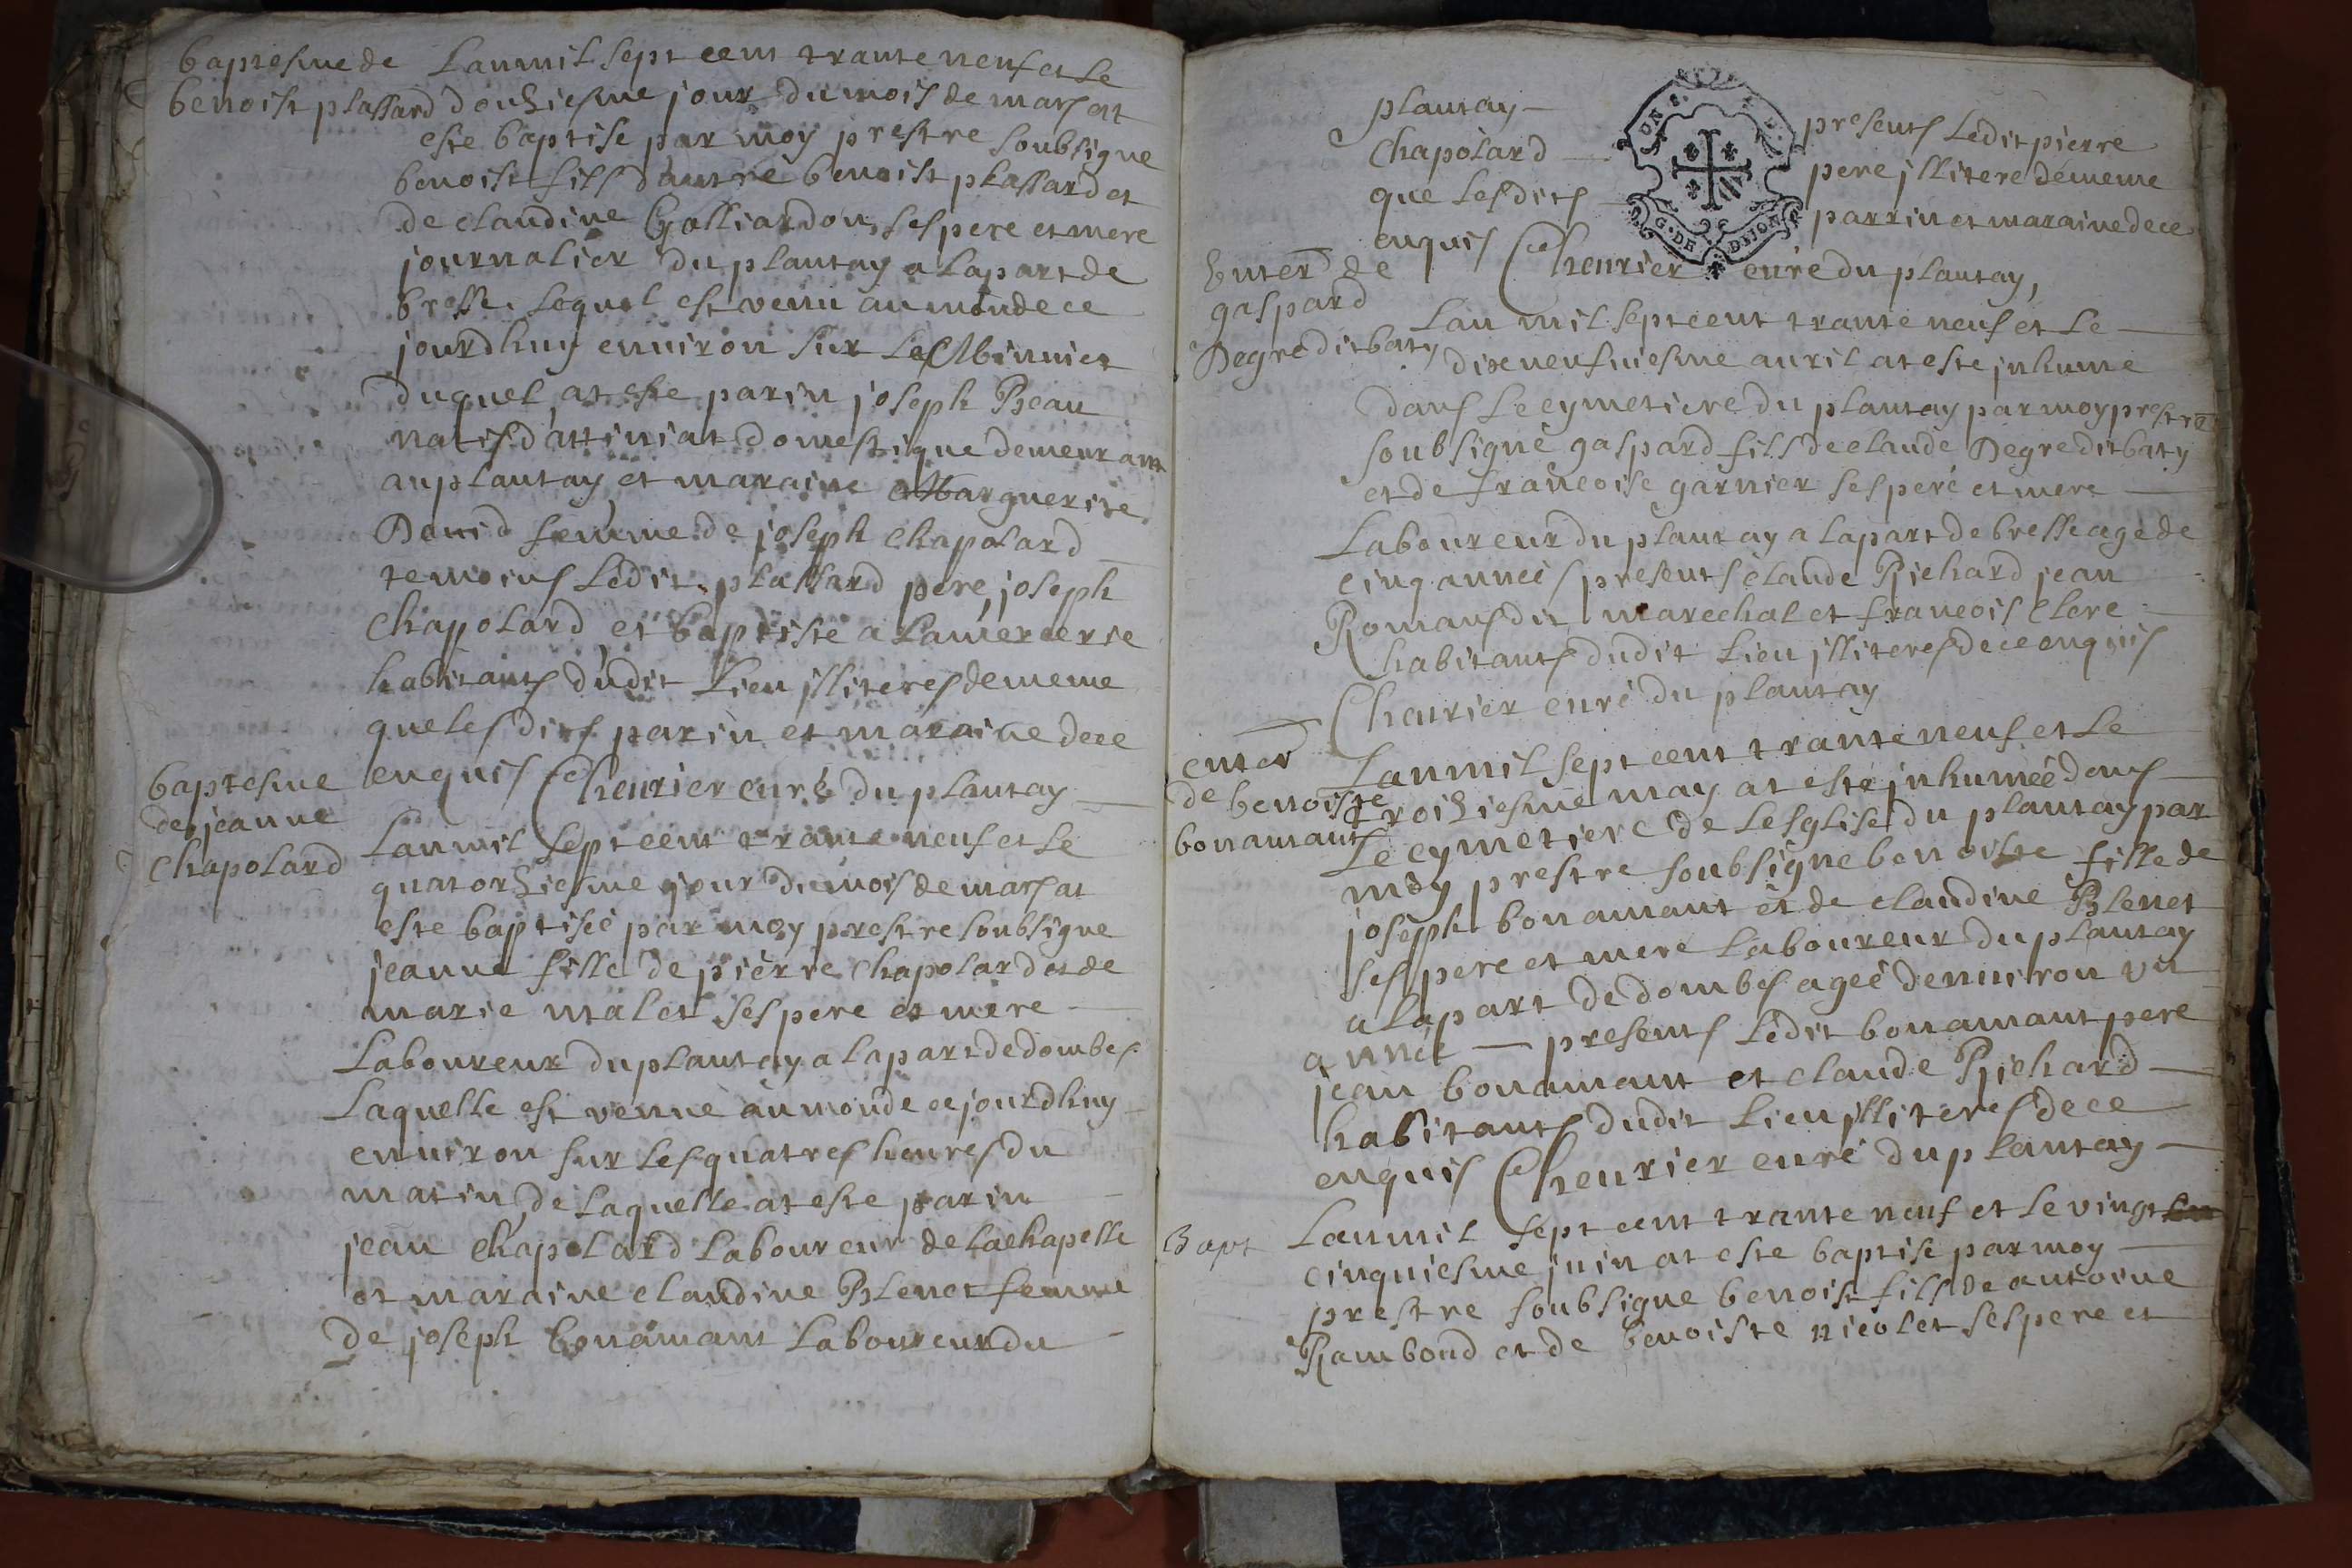 baptesme de
benoist plassard
Lan mil sept cent trante neuf et le
douziesme jour du mois de mars at
este baptise par moy prestre soubsigne
benoist fils dautre benoist plassard et
de claudine Golliardon ses pere et mere
journalier du plantay a la part de
bresse lequel est venu au monde ce
jourdhuy environ sur le Minuict
duquel at este parin joseph Beau
natif dattiniat domestique demeurant
au plantay et maraine Marguerite
David femme de joseph chapolard
temoins ledit plassard pere, joseph
chapolard et baptiste a Lamercerie
habitants dudit Lieu jlliteres de meme
que lesdits parin et maraine de ce
enquis Cheurier curé du plantay
baptesme
de jeanne
chapolard
Lan mil sept cent trante neuf et le
quatorziesme jour du mois de mars at
este baptiseé par moy prestre soubsigne
jeanne fille de pierre chapolard et de
marie malet ses pere et mere
Laboureur du plantay a la part de dombes
Laquelle est venue au monde ce jourdhuy
environ sur les quatres heures du
matin, de Laquelle at este parin
jean chapolard Laboureur de Lachapelle
et maraine claudine Blenet femme
de joseph bonamant Laboureur du
plantay presents Ledit pierre
chapolard pere jllitere de meme
que lesdits parrin et maraine de ce
enquis Cheurier curé du plantay,
G. DE DIJON
Enter de
gaspard
Degre dit baty
Lan mil sept cent trante neuf et Le
dixneufuiesme auril at este jnhume
dans le cymetiere du plantay par moy prestre
soubsigné gaspard fils de claude Degre dit baty
et de francoise garnier ses pere et mere
Laboureur du plantay a la part de bresse age de
cinq anneés presents claude Richard jean
Romans dit marechal et francois Clerc
habitants dudit Lieu jlliteres de ce enquis
Cheurier curé du plantay
enter
de benoiste
bonamant
Lan mil sept cent trante neuf et Le
troiziesme may at esté jnhumeé dans
Le cymetiere de Lesglise du plantay par
moy prestre soubsigne benoiste fille de
joseph bonamant et de claudine Blenet
ses pere et mere Laboureur du plantay
a la part de dombes ageé denuiron vn
anneé presents Ledit bonamant pere
jean bonamant et claude Richard
habitants dudit Lieu jlliteres de ce
enquis Cheurier curé du plantay
Bapt
Lan mil sept cent trante neuf et le vingt
cinquiesme juin at este baptise par moy
prestre soubsigne benoist fils de antoine
Ramboud et de benoiste nicolet ses pere et